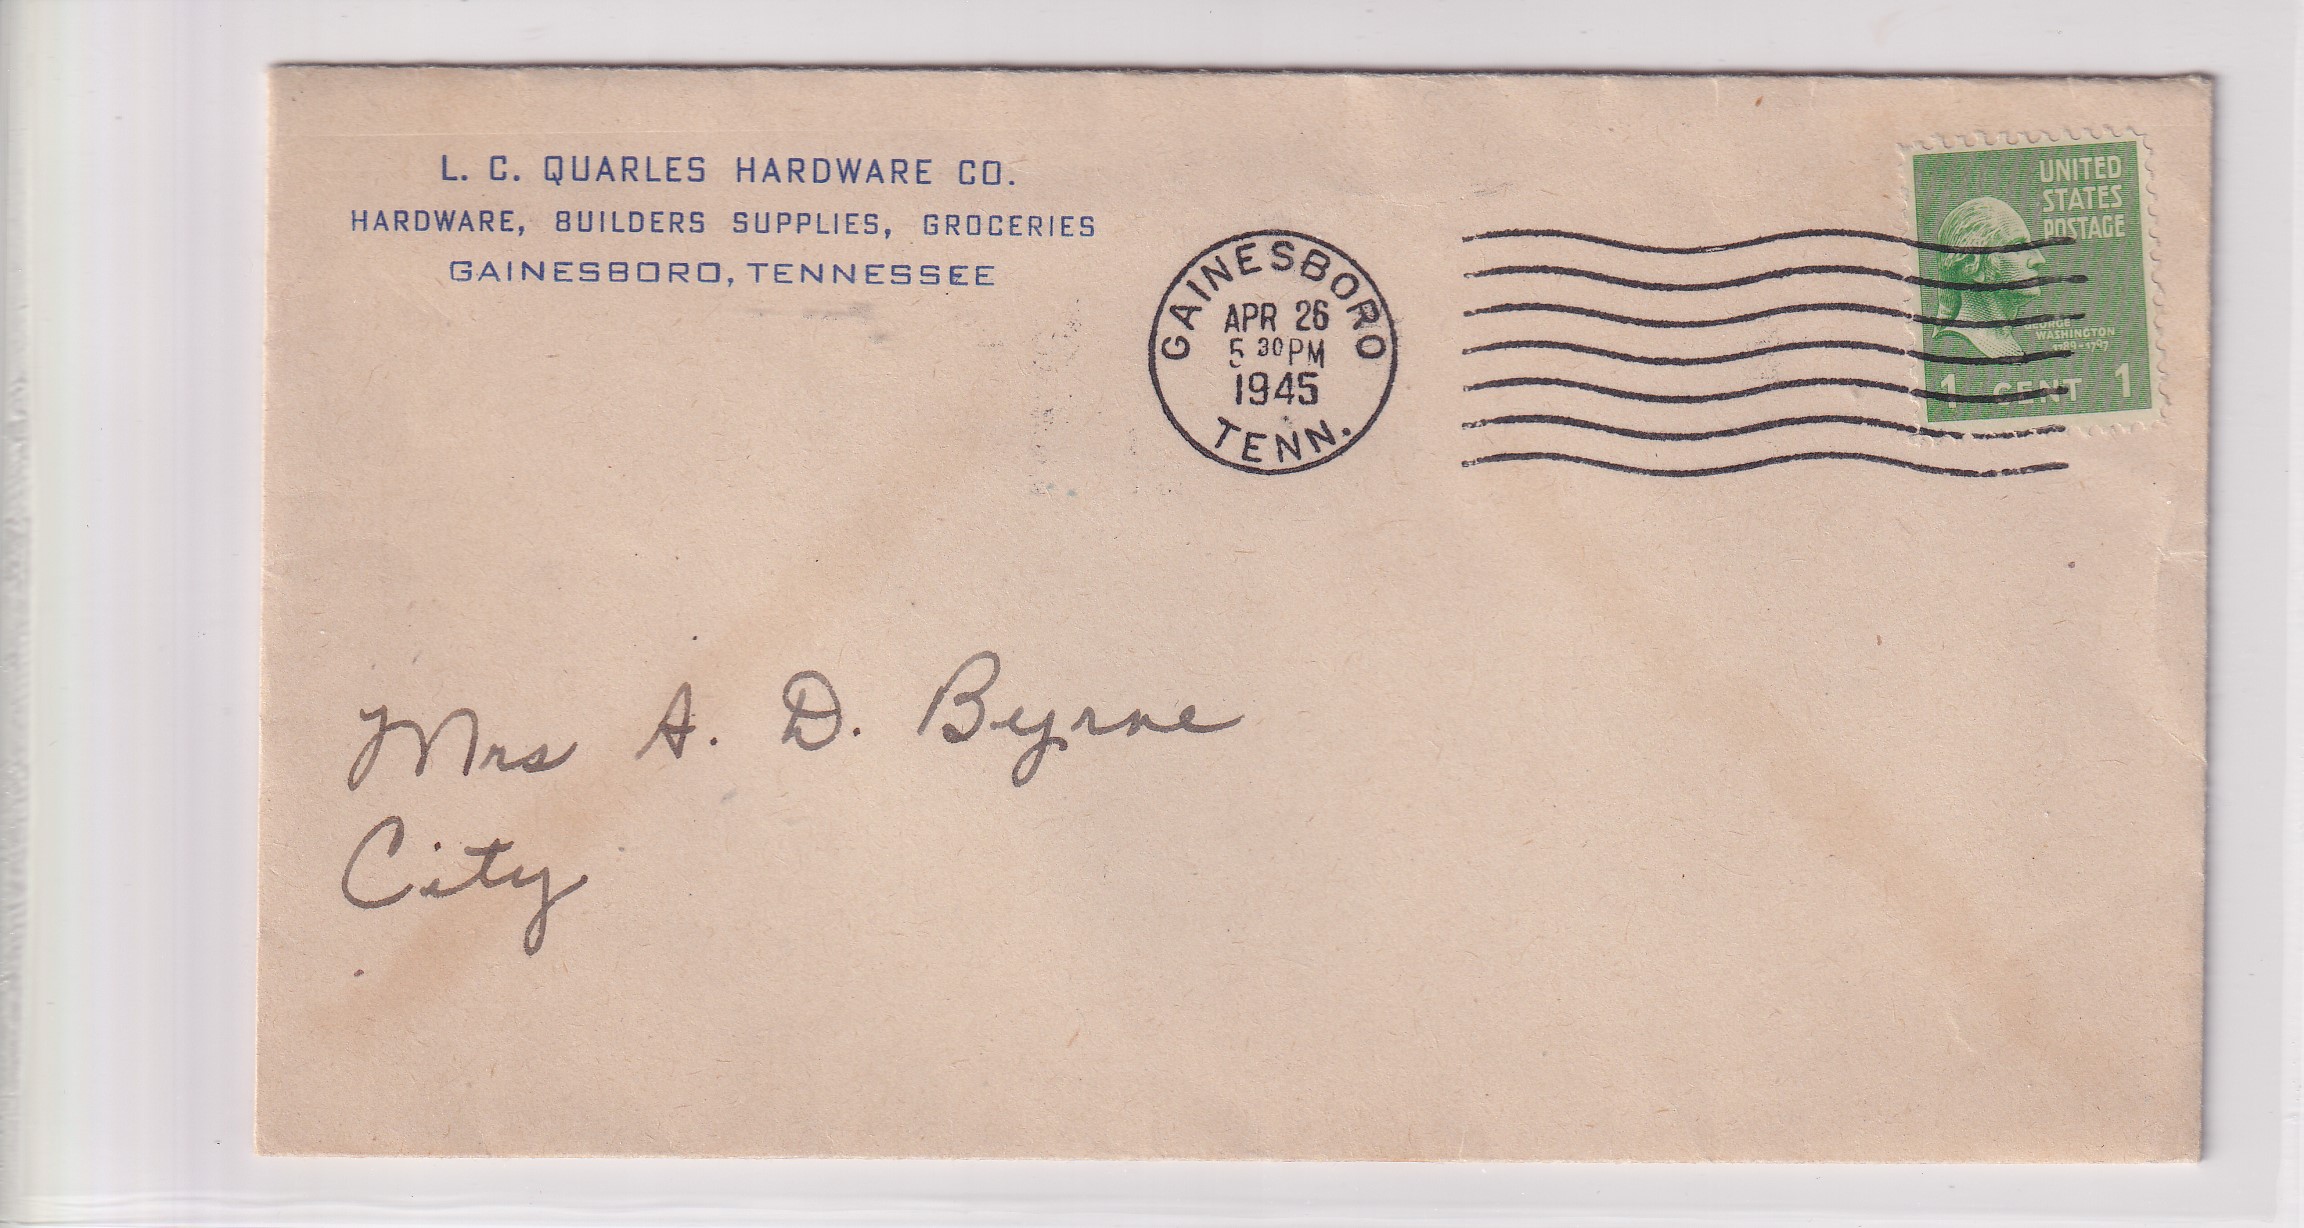 L. C. QUARLES HARDWARE CO.
HARDWARE, BUILDERS SUPPLIES, GROCERIES
GAINESBORO, TENNESSEE
GAINESBORO
APR 26
5 30 PM
1945
TENN.
UNITED
STATES
POSTAGE
GEORGE
WASHINGTON
1789-1797
1 CENT 1
Mrs A. D. Byrne
City